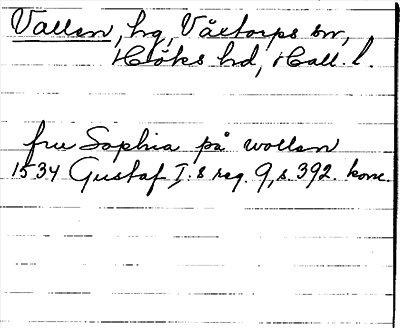 Vallen, hg, Våxtorps sn,
Höks hd, Hall. l.
fru Sophia på wollen
1534 Gustaf I:s reg. 9, s. 392. konc.